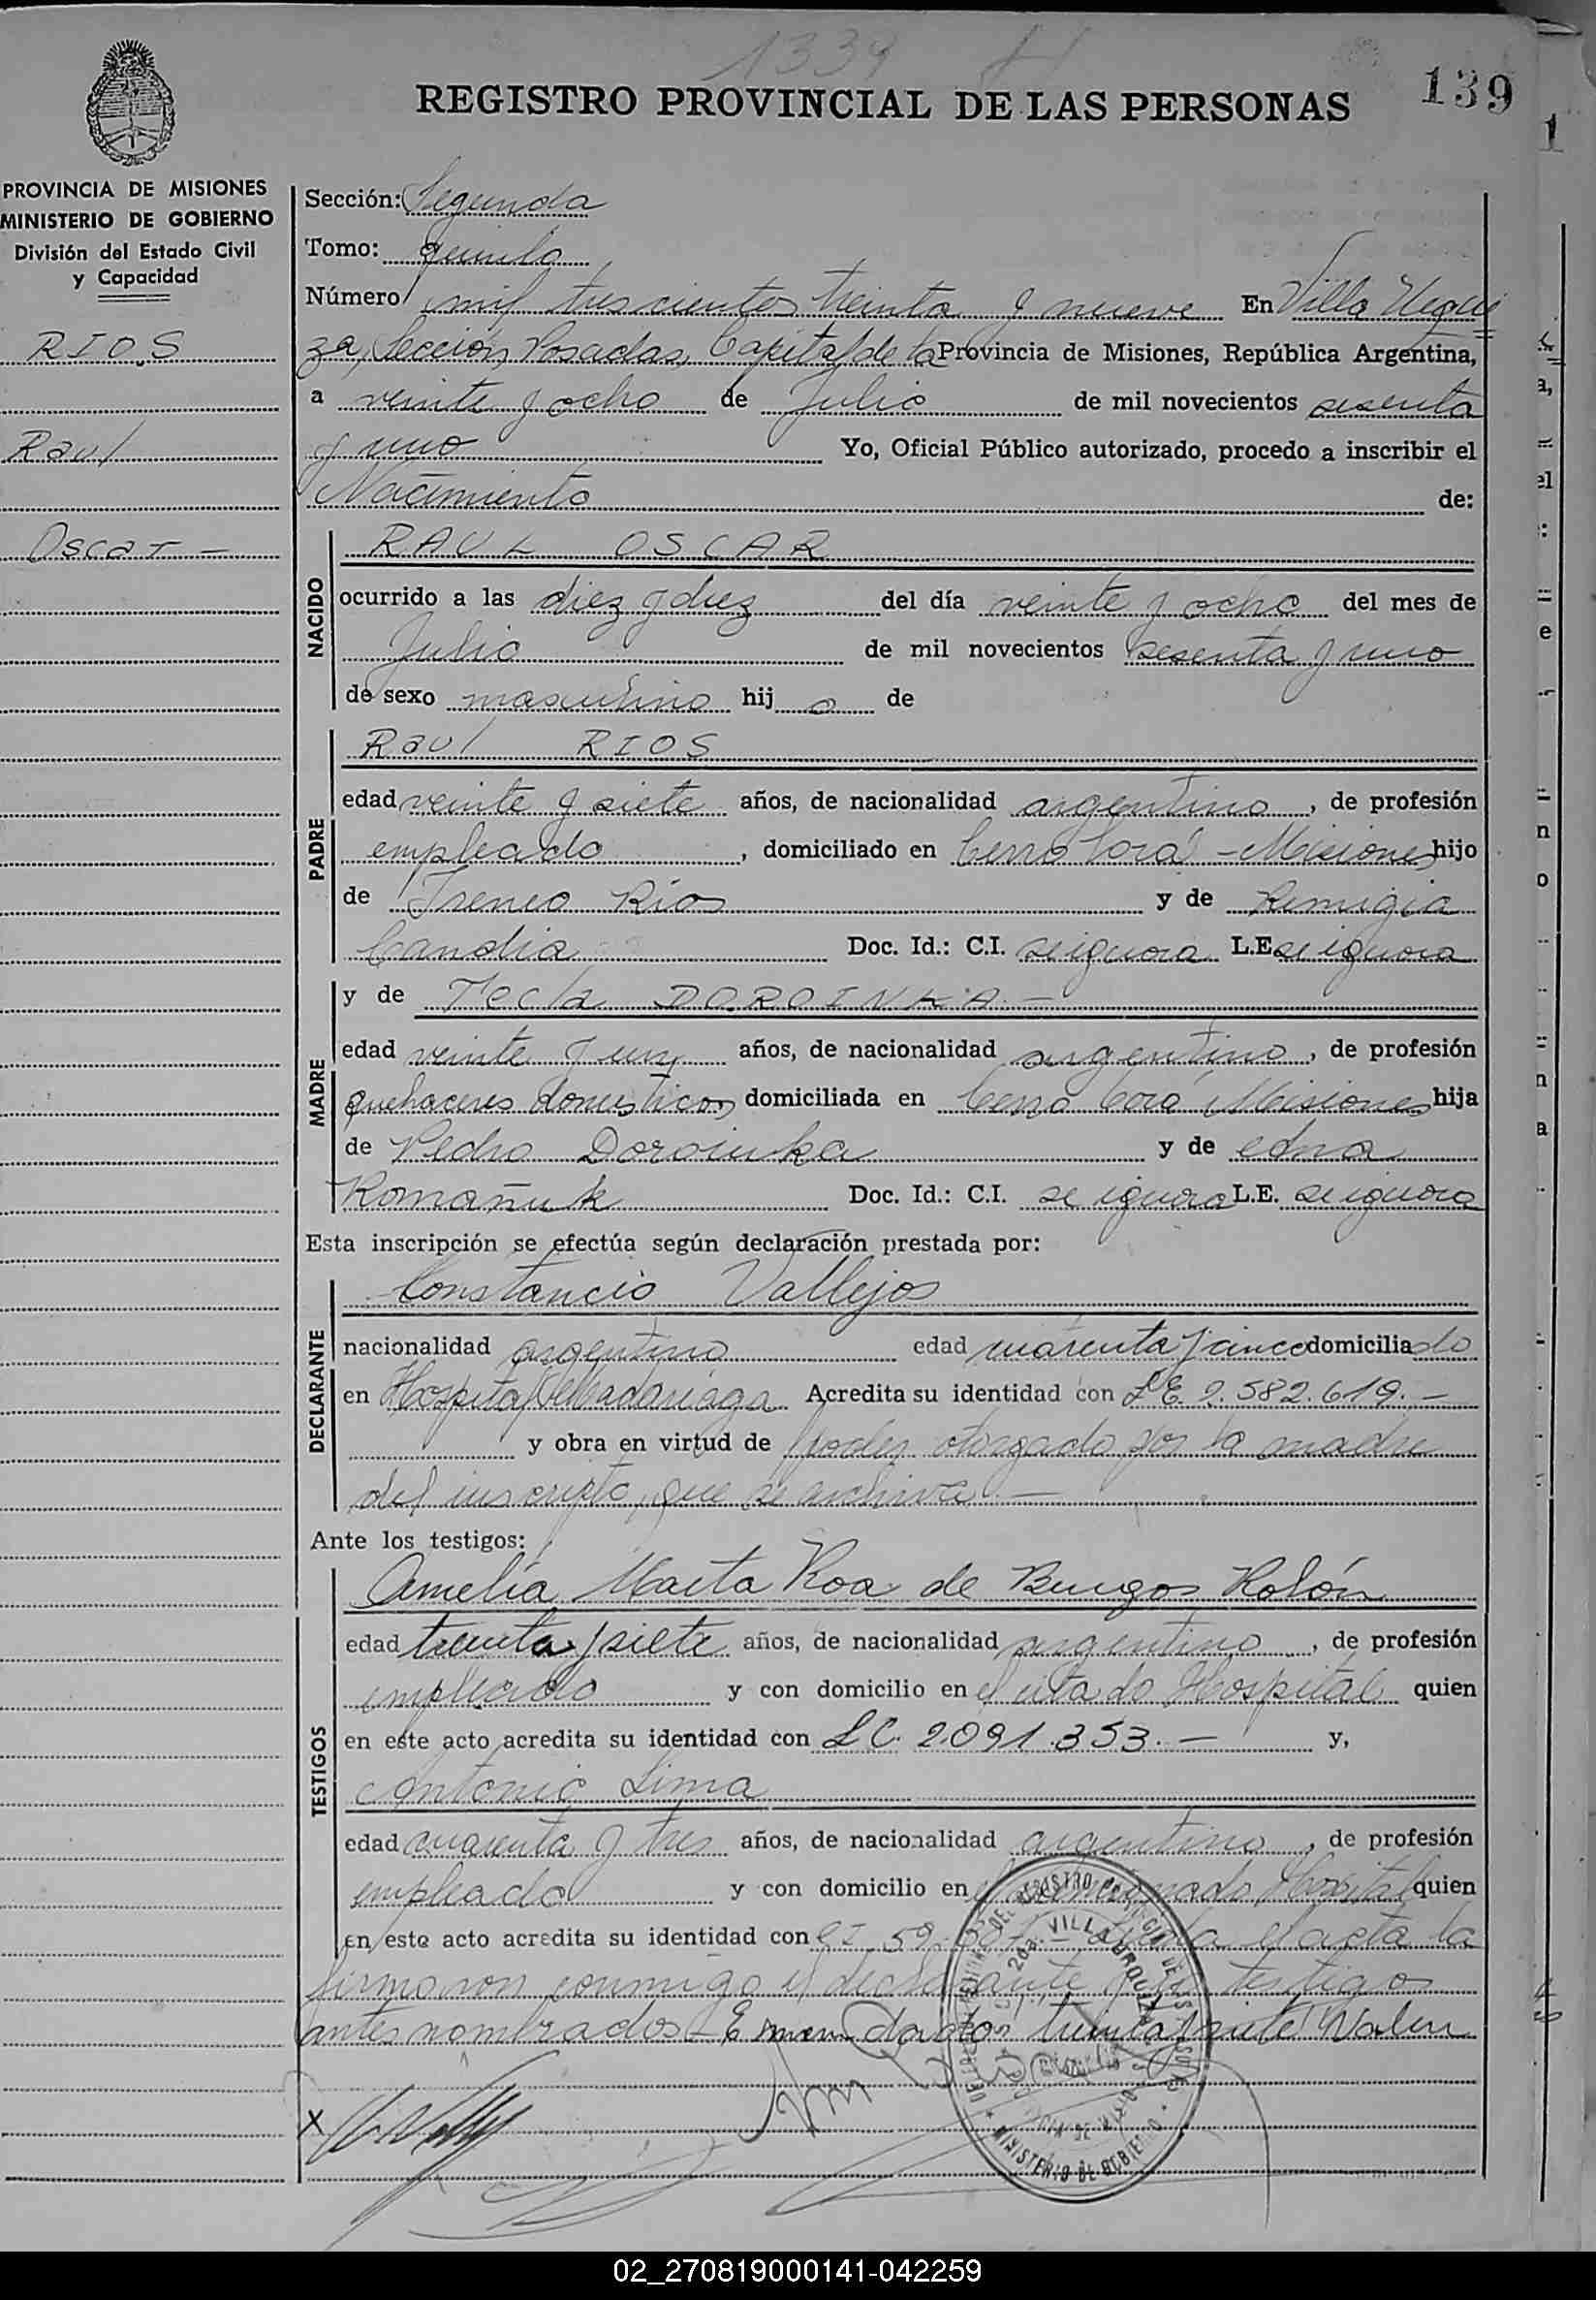 1339
REGISTRO PROVINCIAL DE LAS PERSONAS
139
PROVINCIA DE MISIONES
MINISTERIO DE GOBIERNO
División del Estado Civil
y Capacidad
RIOS
Raul
Oscar –
Sección: Segunda
Tomo: quinto
Número mil trescientos treinta y nueve En Villa Urqui
za, Seccion, Posadas, Capital de la Provincia de Misiones, República Argentina,
a veinte y ocho de Julio de mil novecientos sesenta
y uno Yo, Oficial Público autorizado, procedo a inscribir el
Nacimiento de:
NACIDO
RAUL OSCAR
ocurrido a las diez y diez del día veinte y ocho del mes de
Julio de mil novecientos sesenta y uno
de sexo masculino hij o de
PADRE
Raul RIOS
edad veinte y siete años, de nacionalidad argentino, de profesión
empleado, domiciliado en Cerro Corá – Misiones hijo
de Ireneo Ríos y de Remigia
Candia Doc. Id.: C.I. se ignora L.E. se ignora
MADRE
y de Tecla DOROINKA –
edad veinte y un años, de nacionalidad argentino, de profesión
quehaceres domesticos domiciliada en Cerro Corá Misiones hija
de Pedro Doroinka y de
Romañuk Doc. Id.: C.I. se ignora L.E. se ignora
Esta inscripción se efectúa según declaración prestada por:
DECLARANTE
Constancio Vallejos
nacionalidad argentino edad cuarenta y cinco domiciliado
en Hospital Madariaga Acredita su identidad con L.E. 2.582.619. –
y obra en virtud de poder otorgado por la madre
del inscripto, que se archiva –
Ante los testigos:
TESTIGOS
Amelia Marta Roa de Burgos Rolón
edad treinta y siete años, de nacionalidad argentino, de profesión
empleado y con domicilio en el citado Hospital quien
en este acto acredita su identidad con L.C. 2.091.353. – y,
Antonio Lima
edad cuarenta y tres años, de nacionalidad argentino, de profesión
empleado y con domicilio en el Hospital quien
en este acto acredita su identidad con C.I. 59. el acta la
firmaron conmigo el declarante y los testigos
antes nombrados – Enmendado: treinta y siete Valen
VILLA URQUIZA
MINISTERIO DE GOBIERNO
X
02_270819000141-042259